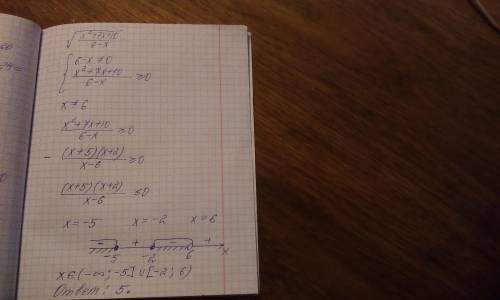 √((x²+7x+10)/(6-x))
{ 6-x≠0
(x²+7x+10)/(6-x) ≥0
x≠6
(x²+7x+10)/(6-x) ≥0
- (x+5)(x+2)/(x-6) ≥0
(x+5)(x+2)/(x-6) ≤0
x=-5 x=-2 x=6
- + - +
-5 -2 6 x
x∈(-∞; -5]∪[-2; 6)
Ответ: 5.